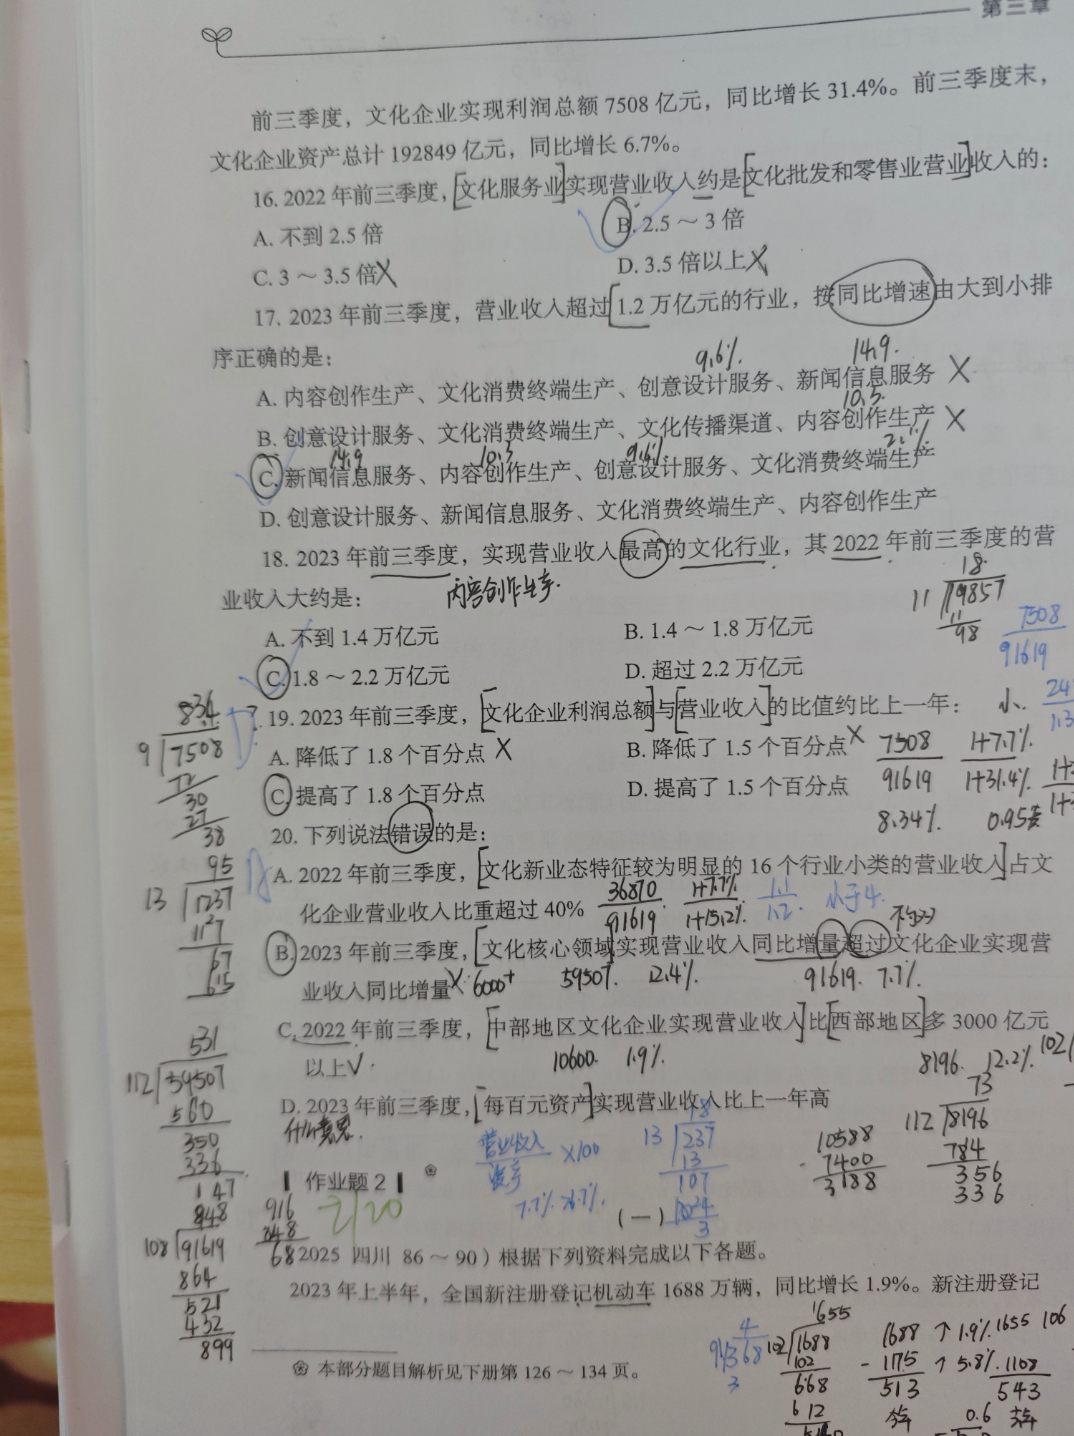 第三章
前三季度，文化企业实现利润总额 7508 亿元，同比增长 31.4%。前三季度末，
文化企业资产总计 192849 亿元，同比增长 6.7%。
16. 2022 年前三季度，文化服务业实现营业收入约是文化批发和零售业营业收入的：
A. 不到 2.5 倍 B. 2.5 ～ 3 倍
C. 3 ～ 3.5 倍 D. 3.5 倍以上
17. 2023 年前三季度，营业收入超过 1.2 万亿元的行业，按同比增速由大到小排
序正确的是：
9.6% 14.9
A. 内容创作生产、文化消费终端生产、创意设计服务、新闻信息服务
10.5
B. 创意设计服务、文化消费终端生产、文化传播渠道、内容创作生产
14.9 10.3 9.6%
C. 新闻信息服务、内容创作生产、创意设计服务、文化消费终端生产
D. 创意设计服务、新闻信息服务、文化消费终端生产、内容创作生产
18. 2023 年前三季度，实现营业收入最高的文化行业，其 2022 年前三季度的营
业收入大约是： 内容创作生产
18
11 19857
11
98
A. 不到 1.4 万亿元 B. 1.4 ～ 1.8 万亿元
7508
91619
C. 1.8 ～ 2.2 万亿元 D. 超过 2.2 万亿元
19. 2023 年前三季度，文化企业利润总额与营业收入的比值约比上一年： 小
A. 降低了 1.8 个百分点 B. 降低了 1.5 个百分点
7508 1+7.7%
91619 1+31.4%
C. 提高了 1.8 个百分点 D. 提高了 1.5 个百分点
8.34%
834
9 7508
72
30
27
38
20. 下列说法错误的是：
A. 2022 年前三季度，文化新业态特征较为明显的 16 个行业小类的营业收入占文
化企业营业收入比重超过 40%
36870 1+7.7%
91619 1+15.2%
1.1
1.2
小于4
95
13 1237
117
67
65
B. 2023 年前三季度，文化核心领域实现营业收入同比增量超过文化企业实现营
业收入同比增量 6000+ 59507 12.4% 91619 7.7%
C. 2022 年前三季度，中部地区文化企业实现营业收入比西部地区多 3000 亿元
以上 10600 1.9% 8196 12.2%
531
112 59507
560
350
336
147
D. 2023 年前三季度，每百元资产实现营业收入比上一年高
什么意思
营业收入 ×100
资产
18
13 237
13
107
104
3
10588
7400
3188
73
112 8196
784
356
336
作业题 2
2/20
（一）
848
108 91619
864
521
432
899
916
848
68
2025 四川 86 ～ 90）根据下列资料完成以下各题。
2023 年上半年，全国新注册登记机动车 1688 万辆，同比增长 1.9%。新注册登记
1655
102 1688
102
668
612
1688 ↑ 1.9% 1655
- 1175 ↑ 5.8% 1108
513 543
106
0.6
本部分题目解析见下册第 126 ～ 134 页。